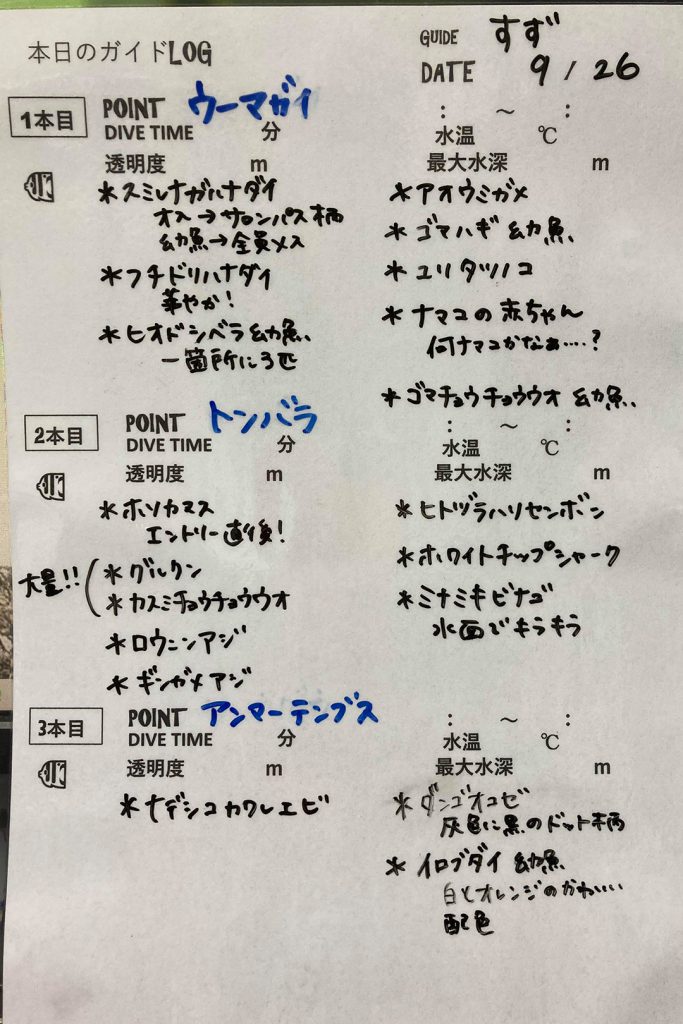 本日のガイドLOG
GUIDE すず
DATE 9 / 26
1本目
POINT ウーマガイ
DIVE TIME 分
透明度 m
: ～ :
水温 ℃
最大水深 m
*スミレナガハナダイ
オス→サロンパス柄
幼魚→全員メス
*フチドリハナダイ
華やか!
*ヒオドシベラ 幼魚
一箇所に3匹
*アオウミガメ
*ゴマハギ 幼魚
*ユリタツノコ
*ナマコの赤ちゃん
何ナマコかなぁ....?
*ゴマチョウチョウウオ 幼魚
2本目
POINT トンバラ
DIVE TIME 分
透明度 m
: ～ :
水温 ℃
最大水深 m
*ホソカマス
エントリー直後!
大量!!
*グルクン
*カスミチョウチョウウオ
*ロウニンアジ
*ギンガメアジ
*ヒトヅラハリセンボン
*ホワイトチップシャーク
*ミナミキビナゴ
水面でキラキラ
3本目
POINT アンマーテンブス
DIVE TIME 分
透明度 m
: ～ :
水温 ℃
最大水深 m
*ナデシコカワレエビ
*ダンゴオコゼ
灰色に黒のドット柄
*イロブダイ 幼魚
白とオレンジのかわいい
配色